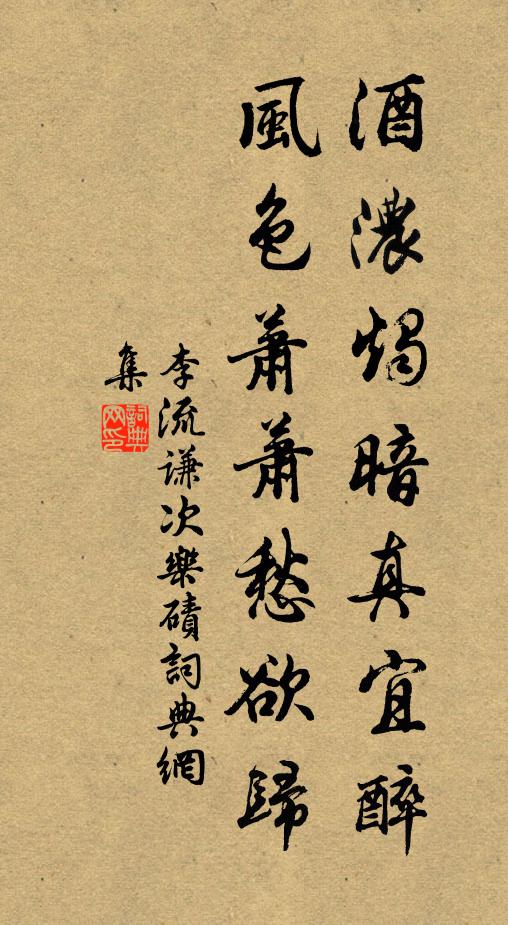 酒濃燭暗真宜醉
風色蕭蕭愁欲歸
李流謙次樂磧詞典網
集
詞典
网印